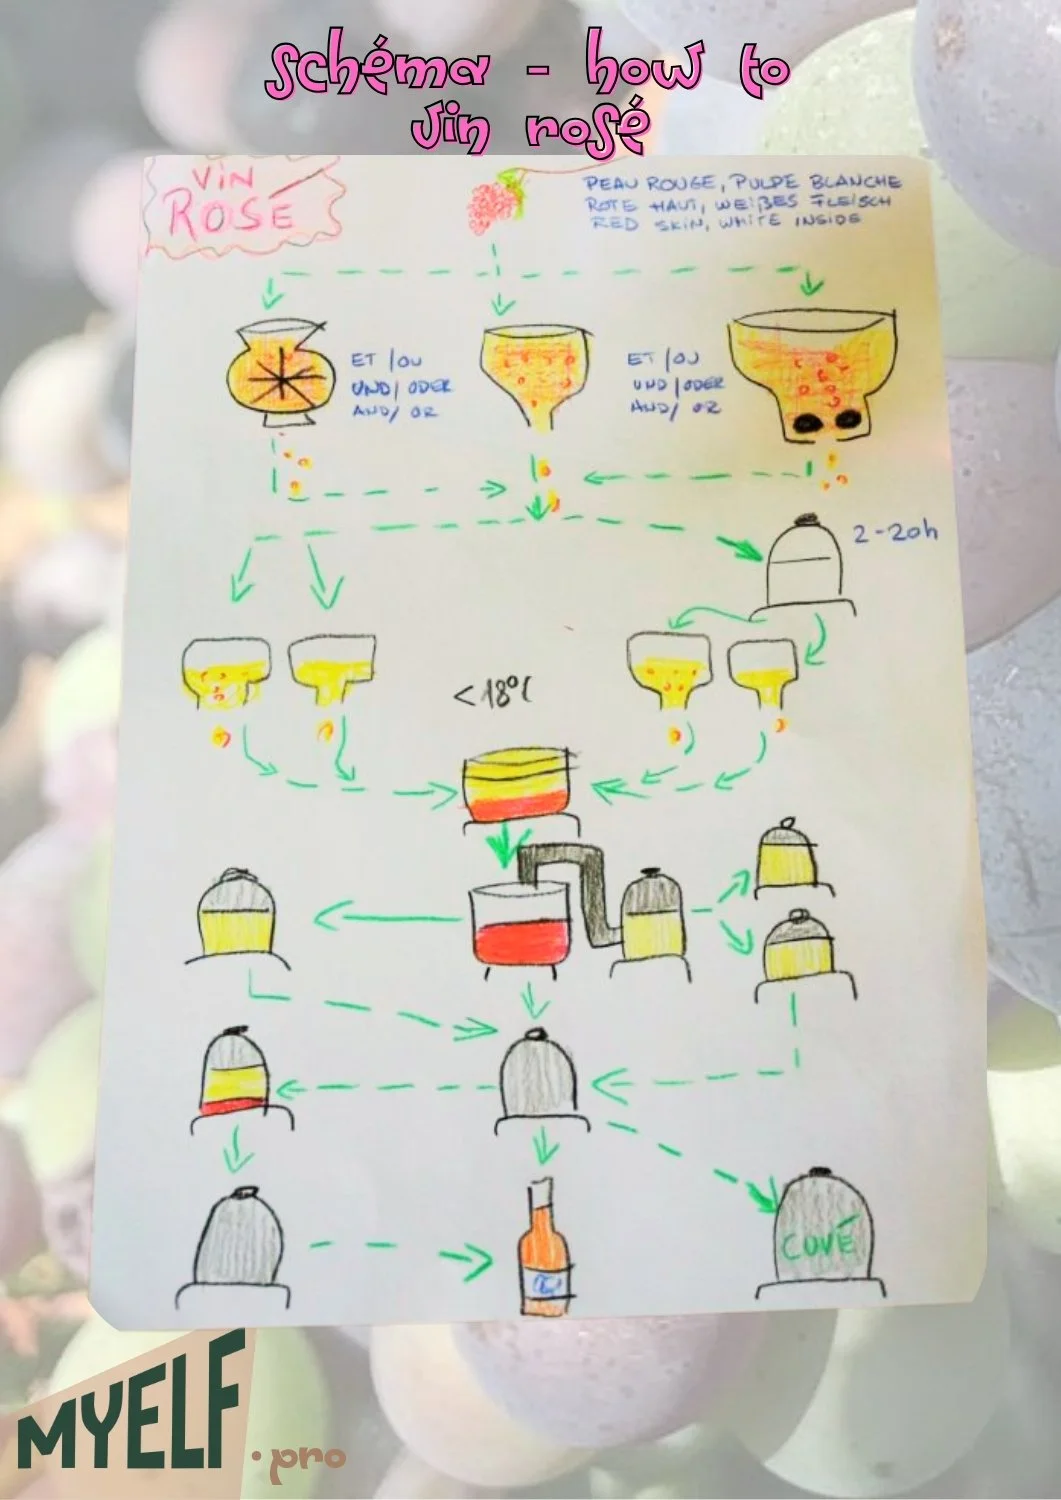 schéma - how to
vin rosé
VIN
ROSÉ
PEAU ROUGE, PULPE BLANCHE
ROTE HAUT, WEIßES FLEISCH
RED SKIN, WHITE INSIDE
ET/OU
UND/ODER
AND/OR
ET/OU
UND/ODER
AND/OR
2-20h
<18°C
CUVÉ
MYELF
.pro